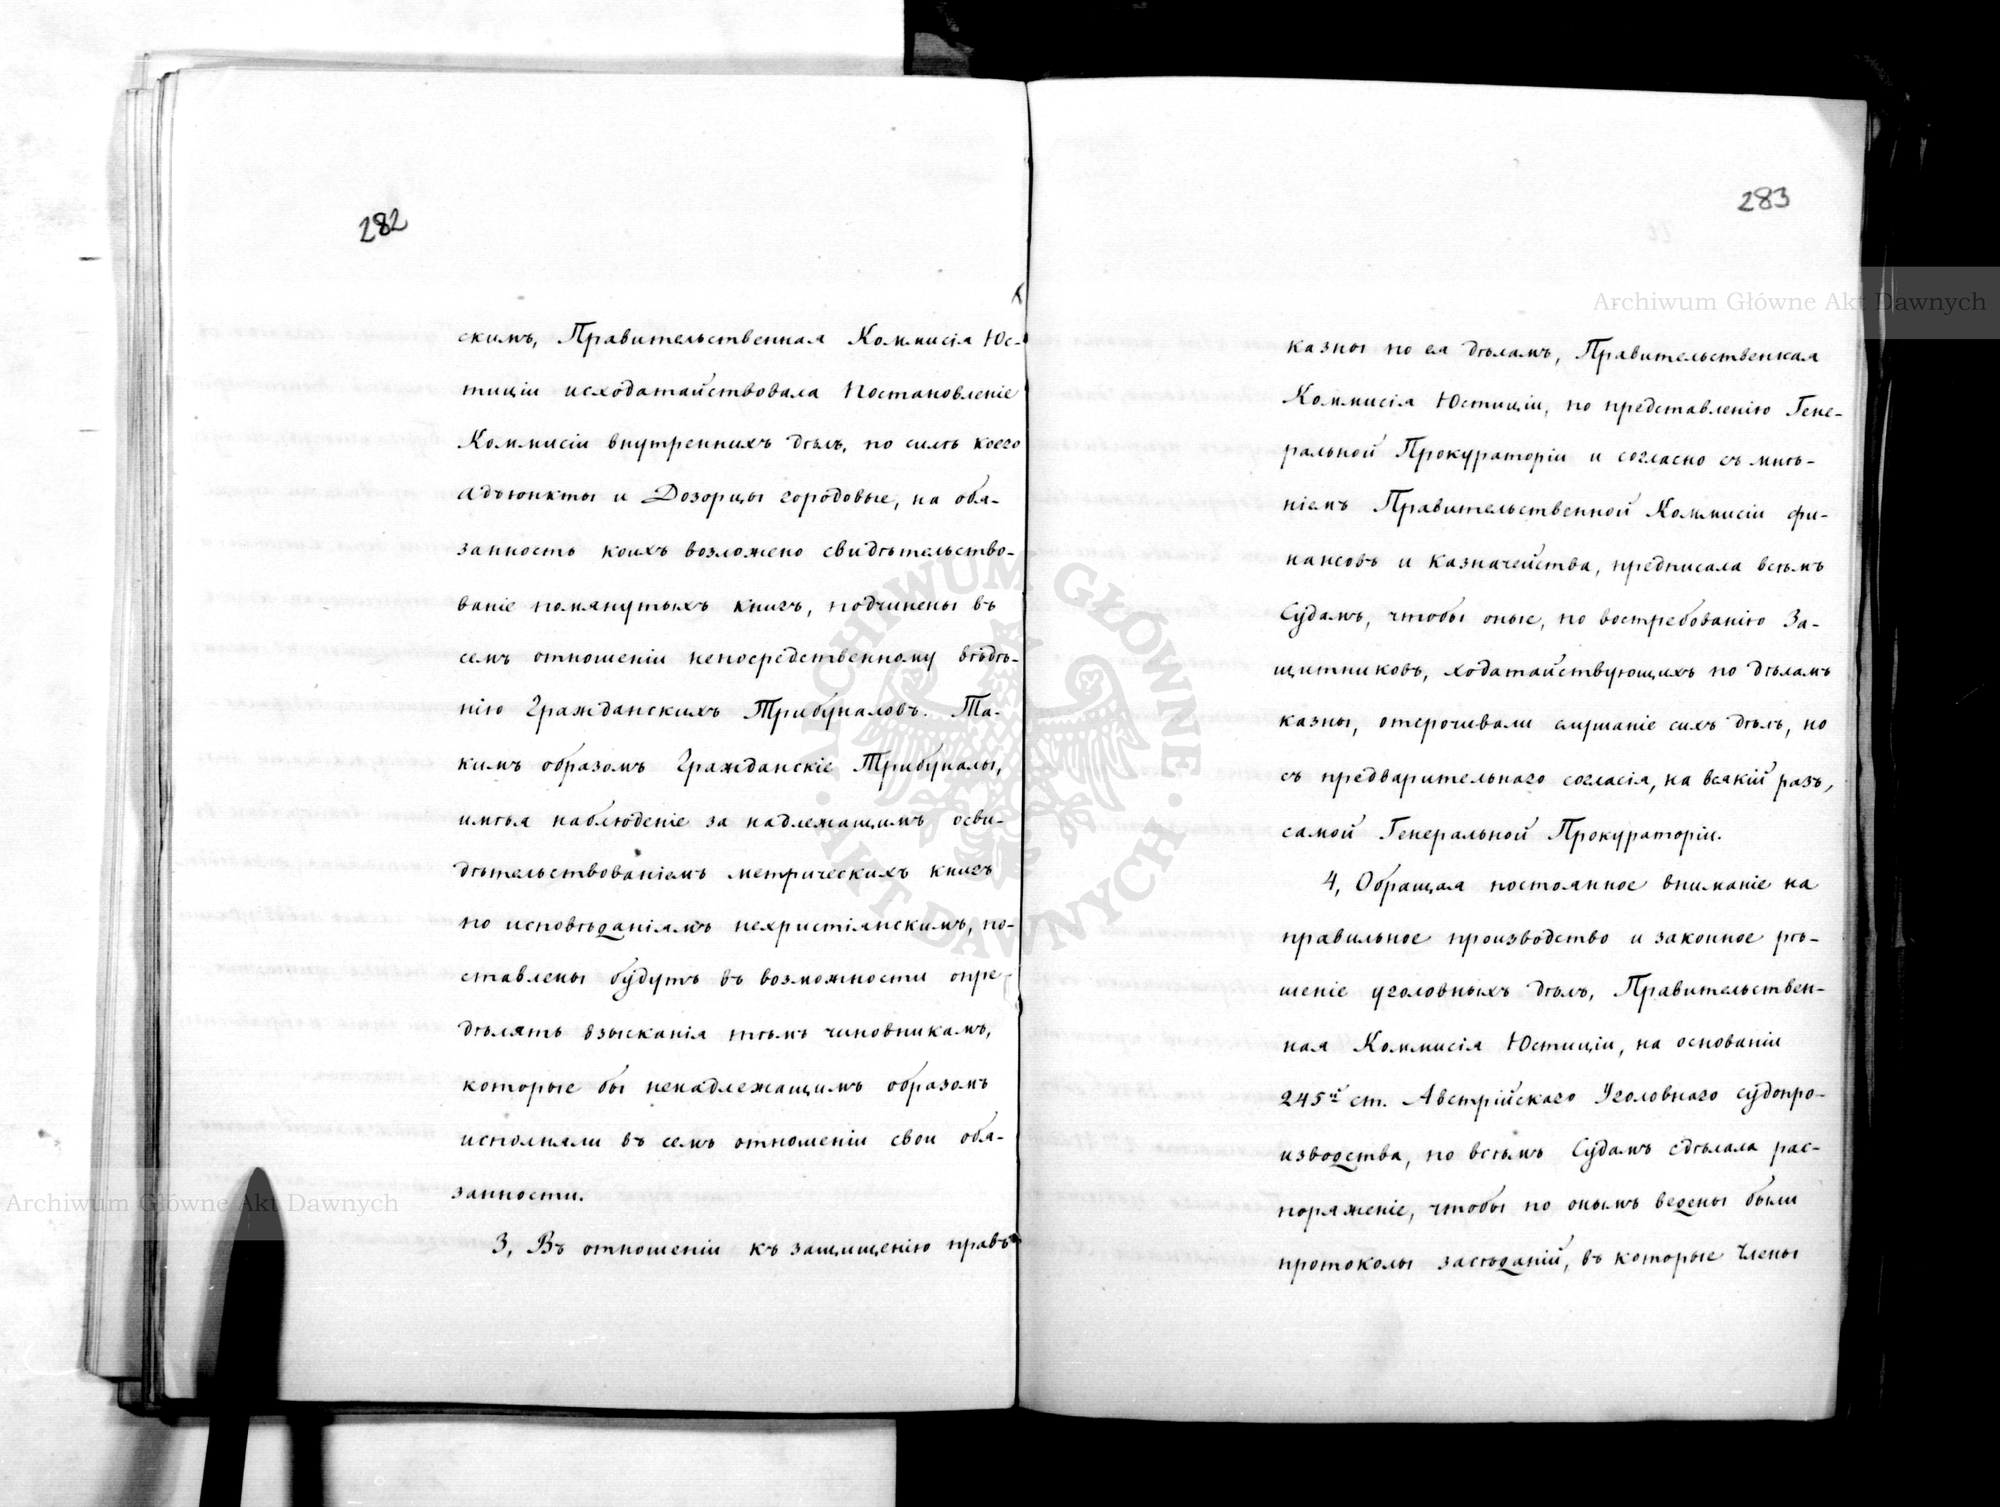 282
скимъ, Правительственная Коммисія Юс-
тиціи исходатайствовала Постановленіе
Коммисіи внутреннихъ дѣлъ, по силѣ коего
Адъюнкты и Дозорцы городовые, на обя-
занность коихъ возложено свидѣтельство-
ваніе помянутыхъ книгъ, подчинены въ
семъ отношеніи непосредственному вѣдѣ-
нію Гражданскихъ Трибуналовъ. Та-
кимъ образомъ Гражданскіе Трибуналы,
имѣя наблюденіе за надлежащимъ осви-
дѣтельствованіемъ метрическихъ книгъ
по исповѣданіямъ нехристіянскимъ, по-
ставлены будутъ въ возможности опре-
дѣлять взысканія тѣмъ чиновникамъ,
которые бы ненадлежащимъ образомъ
исполняли въ семъ отношеніи свои обя-
занности.
3, Въ отношеніи къ защищенію правъ
283
казны по ея дѣламъ, Правительственная
Коммисія Юстиціи, по представленію Гене-
ральной Прокураторіи и согласно съ мнѣ-
ніемъ Правительственной Коммисіи фи-
нансовъ и казначейства, предписала всѣмъ
Судамъ, чтобы оные, по востребованію За-
щитниковъ, ходатайствующихъ по дѣламъ
казны, отсрочивали слушаніе сихъ дѣлъ, но
съ предварительнаго согласія, на всякій разъ,
самой Генеральной Прокураторіи.
4, Обращая постоянное вниманіе на
правильное производство и законное рѣ-
шеніе уголовныхъ дѣлъ, Правительствен-
ная Коммисія Юстиціи, на основаніи
245й ст. Австрійскаго Уголовнаго судопро-
изводства, по всѣмъ Судамъ сдѣлала рас-
поряженіе, чтобы по онымъ ведены были
протоколы засѣданій, въ которые Члены
Archiwum Główne Akt Dawnych
Archiwum Główne Akt Dawnych
ARCHIWUM GŁÓWNE · AKT DAWNYCH ·